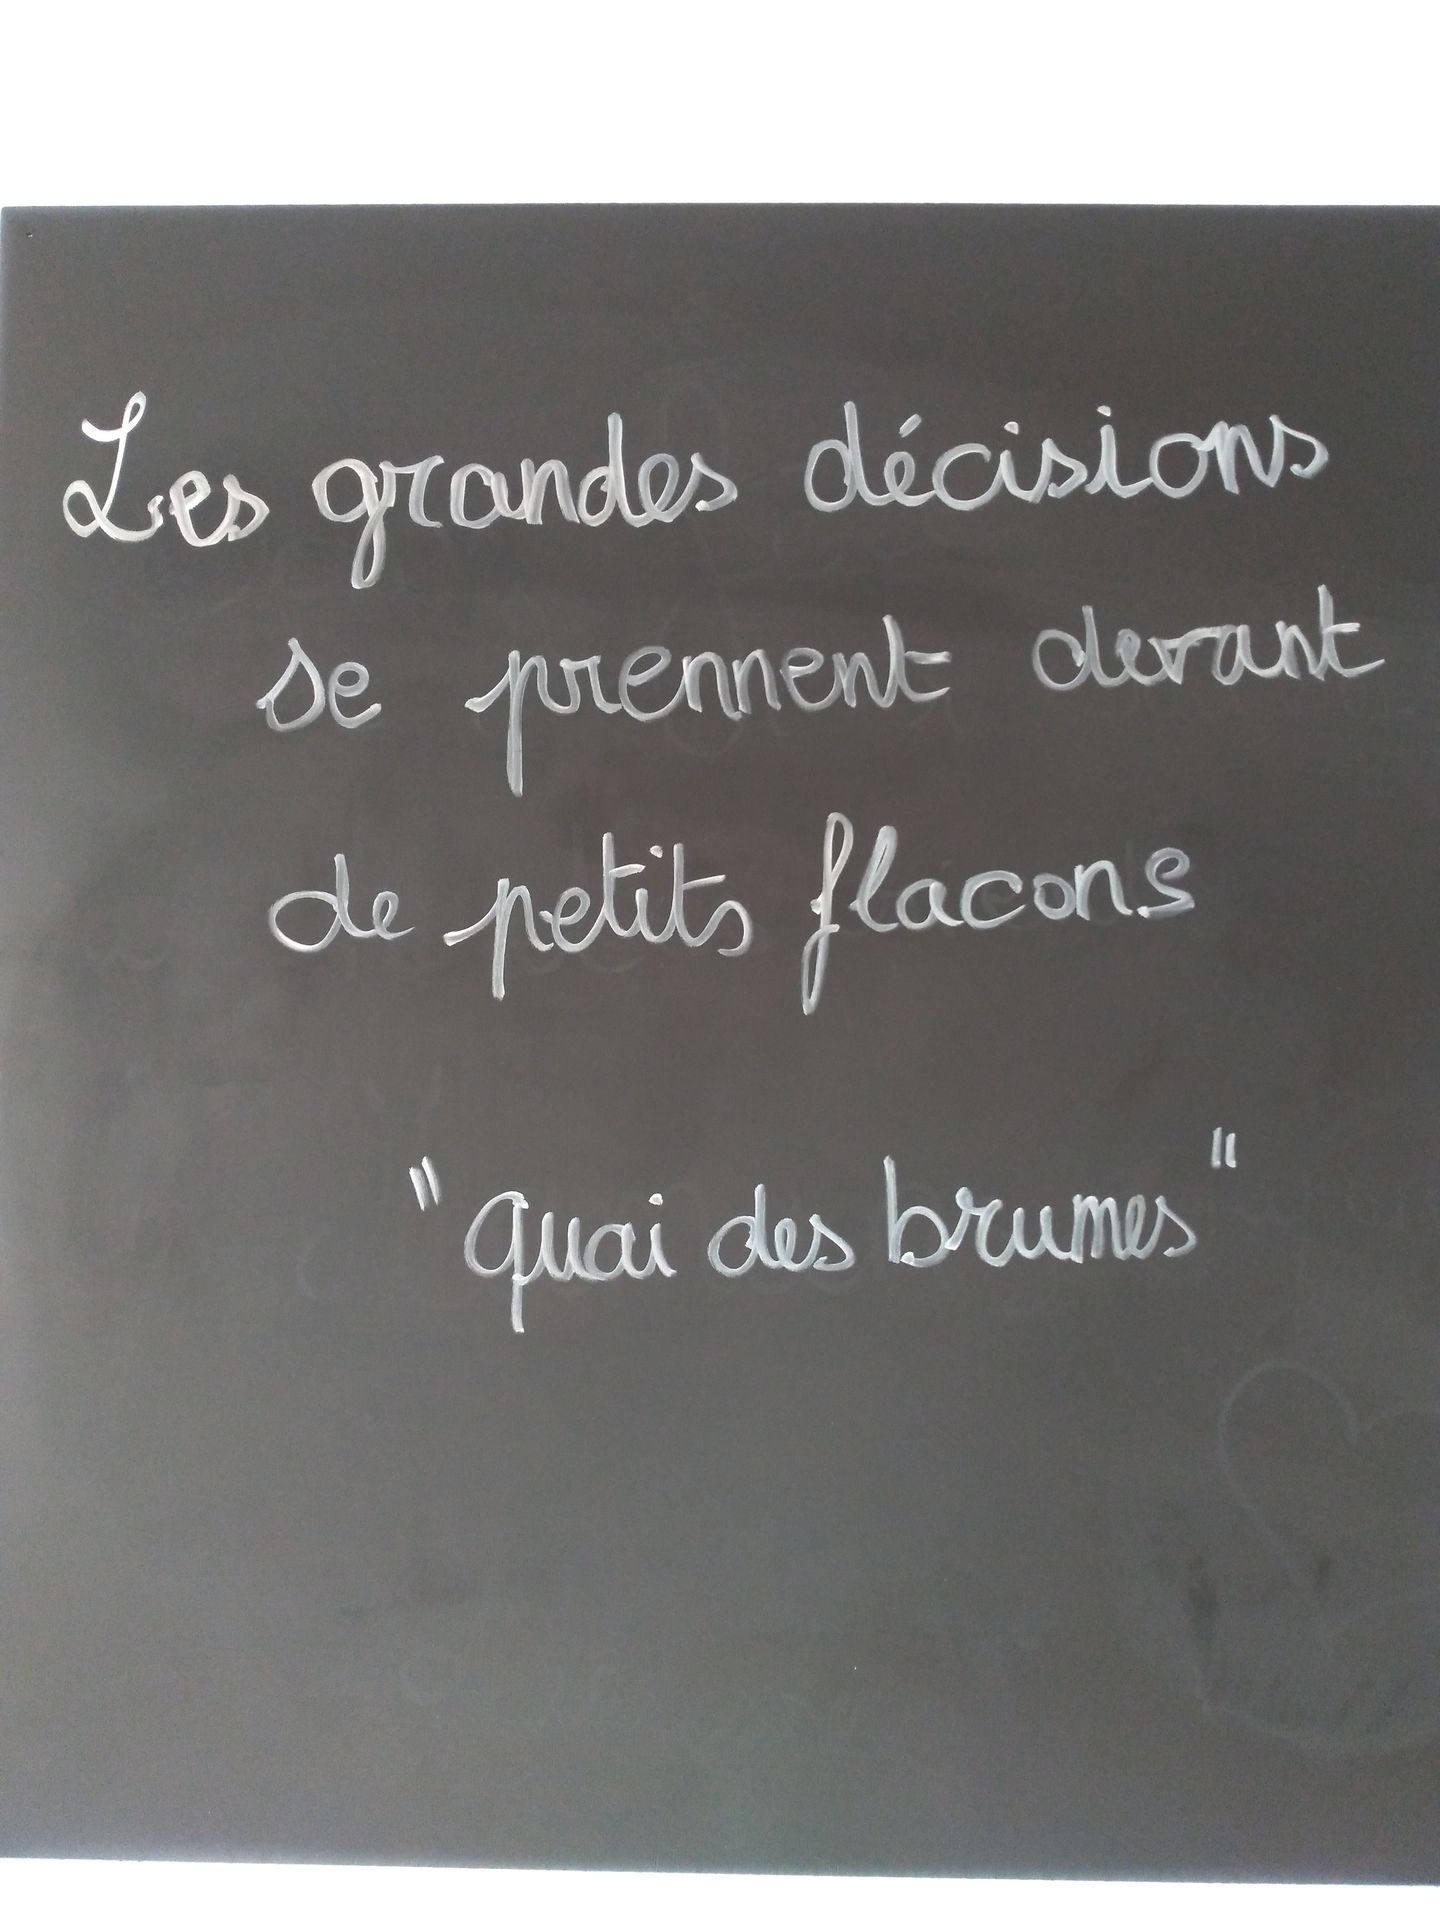 Les grandes décisions
se prennent devant
de petits flacons
"quai des brumes"